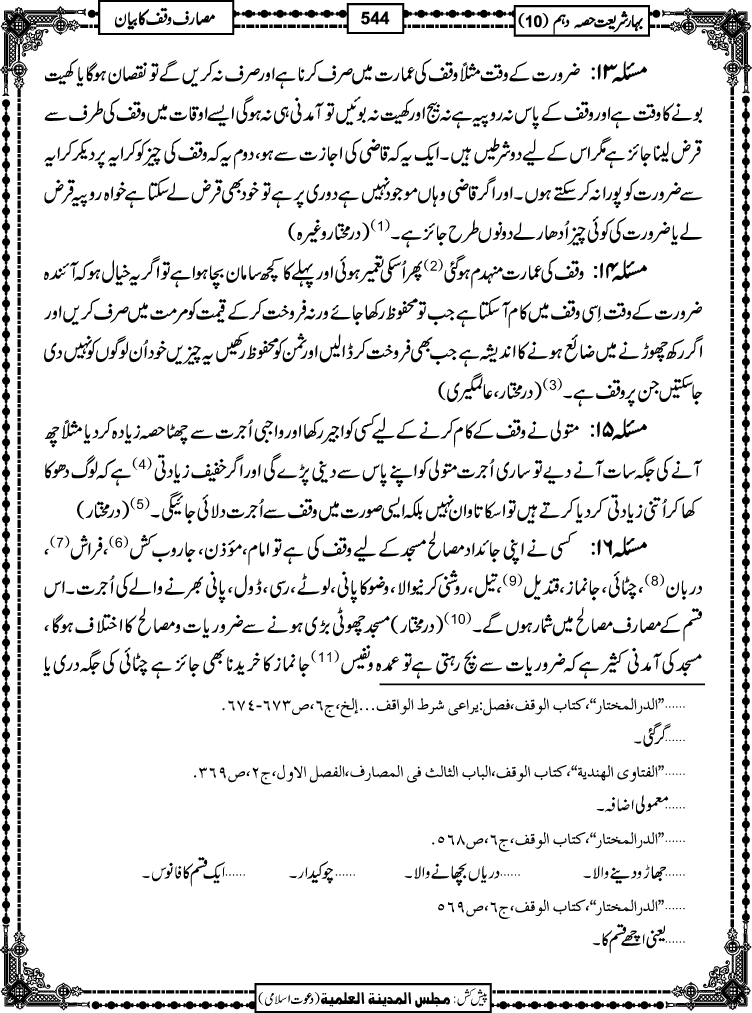 بہارِ شریعت حصہ دہم (10)
544
مصارف وقف کا بیان
مسئلہ ۱۳: ضرورت کے وقت مثلاً وقف کی عمارت میں صرف کرنا ہے اور صرف نہ کریں گے تو نقصان ہوگا یا کھیت
بونے کا وقت ہے اور وقف کے پاس نہ روپیہ ہے نہ بیج اور کھیت نہ بوئیں تو آمدنی ہی نہ ہوگی ایسے اوقات میں وقف کی طرف سے
قرض لینا جائز ہے مگر اس کے لیے دو شرطیں ہیں۔ ایک یہ کہ قاضی کی اجازت سے ہو، دوم یہ کہ وقف کی چیز کو کرایہ پر دیکر کرایہ
سے ضرورت کو پورا نہ کرسکتے ہوں۔ اور اگر قاضی وہاں موجود نہیں ہے دوری پر ہے تو خود بھی قرض لے سکتا ہے خواہ روپیہ قرض
لے یا ضرورت کی کوئی چیز اُدھار لے دونوں طرح جائز ہے۔(1) (درمختار وغیرہ)
مسئلہ ۱۴: وقف کی عمارت منہدم ہوگئی(2) پھر اُسکی تعمیر ہوئی اور پہلے کا کچھ سامان بچا ہوا ہے تو اگر یہ خیال ہو کہ آئندہ
ضرورت کے وقت اِسی وقف میں کام آسکتا ہے جب تو محفوظ رکھا جائے ورنہ فروخت کرکے قیمت کو مرمت میں صرف کریں اور
اگر رکھ چھوڑنے میں ضائع ہونے کا اندیشہ ہے جب بھی فروخت کر ڈالیں اور ثمن کو محفوظ رکھیں یہ چیزیں خود اُن لوگوں کو نہیں دی
جاسکتیں جن پر وقف ہے۔(3) (درمختار، عالمگیری)
مسئلہ ۱۵: متولی نے وقف کے کام کرنے کے لیے کسی کو اجیر رکھا اور واجبی اُجرت سے چھٹا حصہ زیادہ کر دیا مثلاً چھ
آنے کی جگہ سات آنے دیے تو ساری اُجرت متولی کو اپنے پاس سے دینی پڑے گی اور اگر خفیف زیادتی(4) ہے کہ لوگ دھوکا
کھا کر اُتنی زیادتی کر دیا کرتے ہیں تو اسکا تاوان نہیں بلکہ ایسی صورت میں وقف سے اُجرت دلائی جائیگی۔(5) (درمختار)
مسئلہ ۱۶: کسی نے اپنی جائداد مصالح مسجد کے لیے وقف کی ہے تو امام، مؤذن، جاروب کش(6)، فراش(7)،
دربان(8)، چٹائی، جانماز، قندیل(9)، تیل، روشنی کرنیوالا، وضو کا پانی، لوٹے، رسی، ڈول، پانی بھرنے والے کی اُجرت۔ اس
قسم کے مصارف مصالح میں شمار ہوں گے۔(10) (درمختار) مسجد چھوٹی بڑی ہونے سے ضروریات و مصالح کا اختلاف ہوگا،
مسجد کی آمدنی کثیر ہے کہ ضروریات سے بچ رہتی ہے تو عمدہ و نفیس(11) جانماز کا خریدنا بھی جائز ہے چٹائی کی جگہ دری یا
......”الدرالمختار“، کتاب الوقف، فصل: یراعی شرط الواقف... إلخ، ج٦، ص٦٧٣-٦٧٤.
......گرگئی۔
......”الفتاوی الھندیة“، کتاب الوقف، الباب الثالث فی المصارف، الفصل الاول، ج٢، ص٣٦٩.
......معمولی اضافہ۔
......”الدرالمختار“، کتاب الوقف، ج٦، ص٥٦٨.
......جھاڑو دینے والا۔ ......دریاں بچھانے والا۔ ......چوکیدار۔ ......ایک قسم کا فانوس۔
......”الدرالمختار“، کتاب الوقف، ج٦، ص٥٦٩
......یعنی اچھے قسم کا۔
پیش کش: مجلس المدینة العلمیة (دعوت اسلامی)